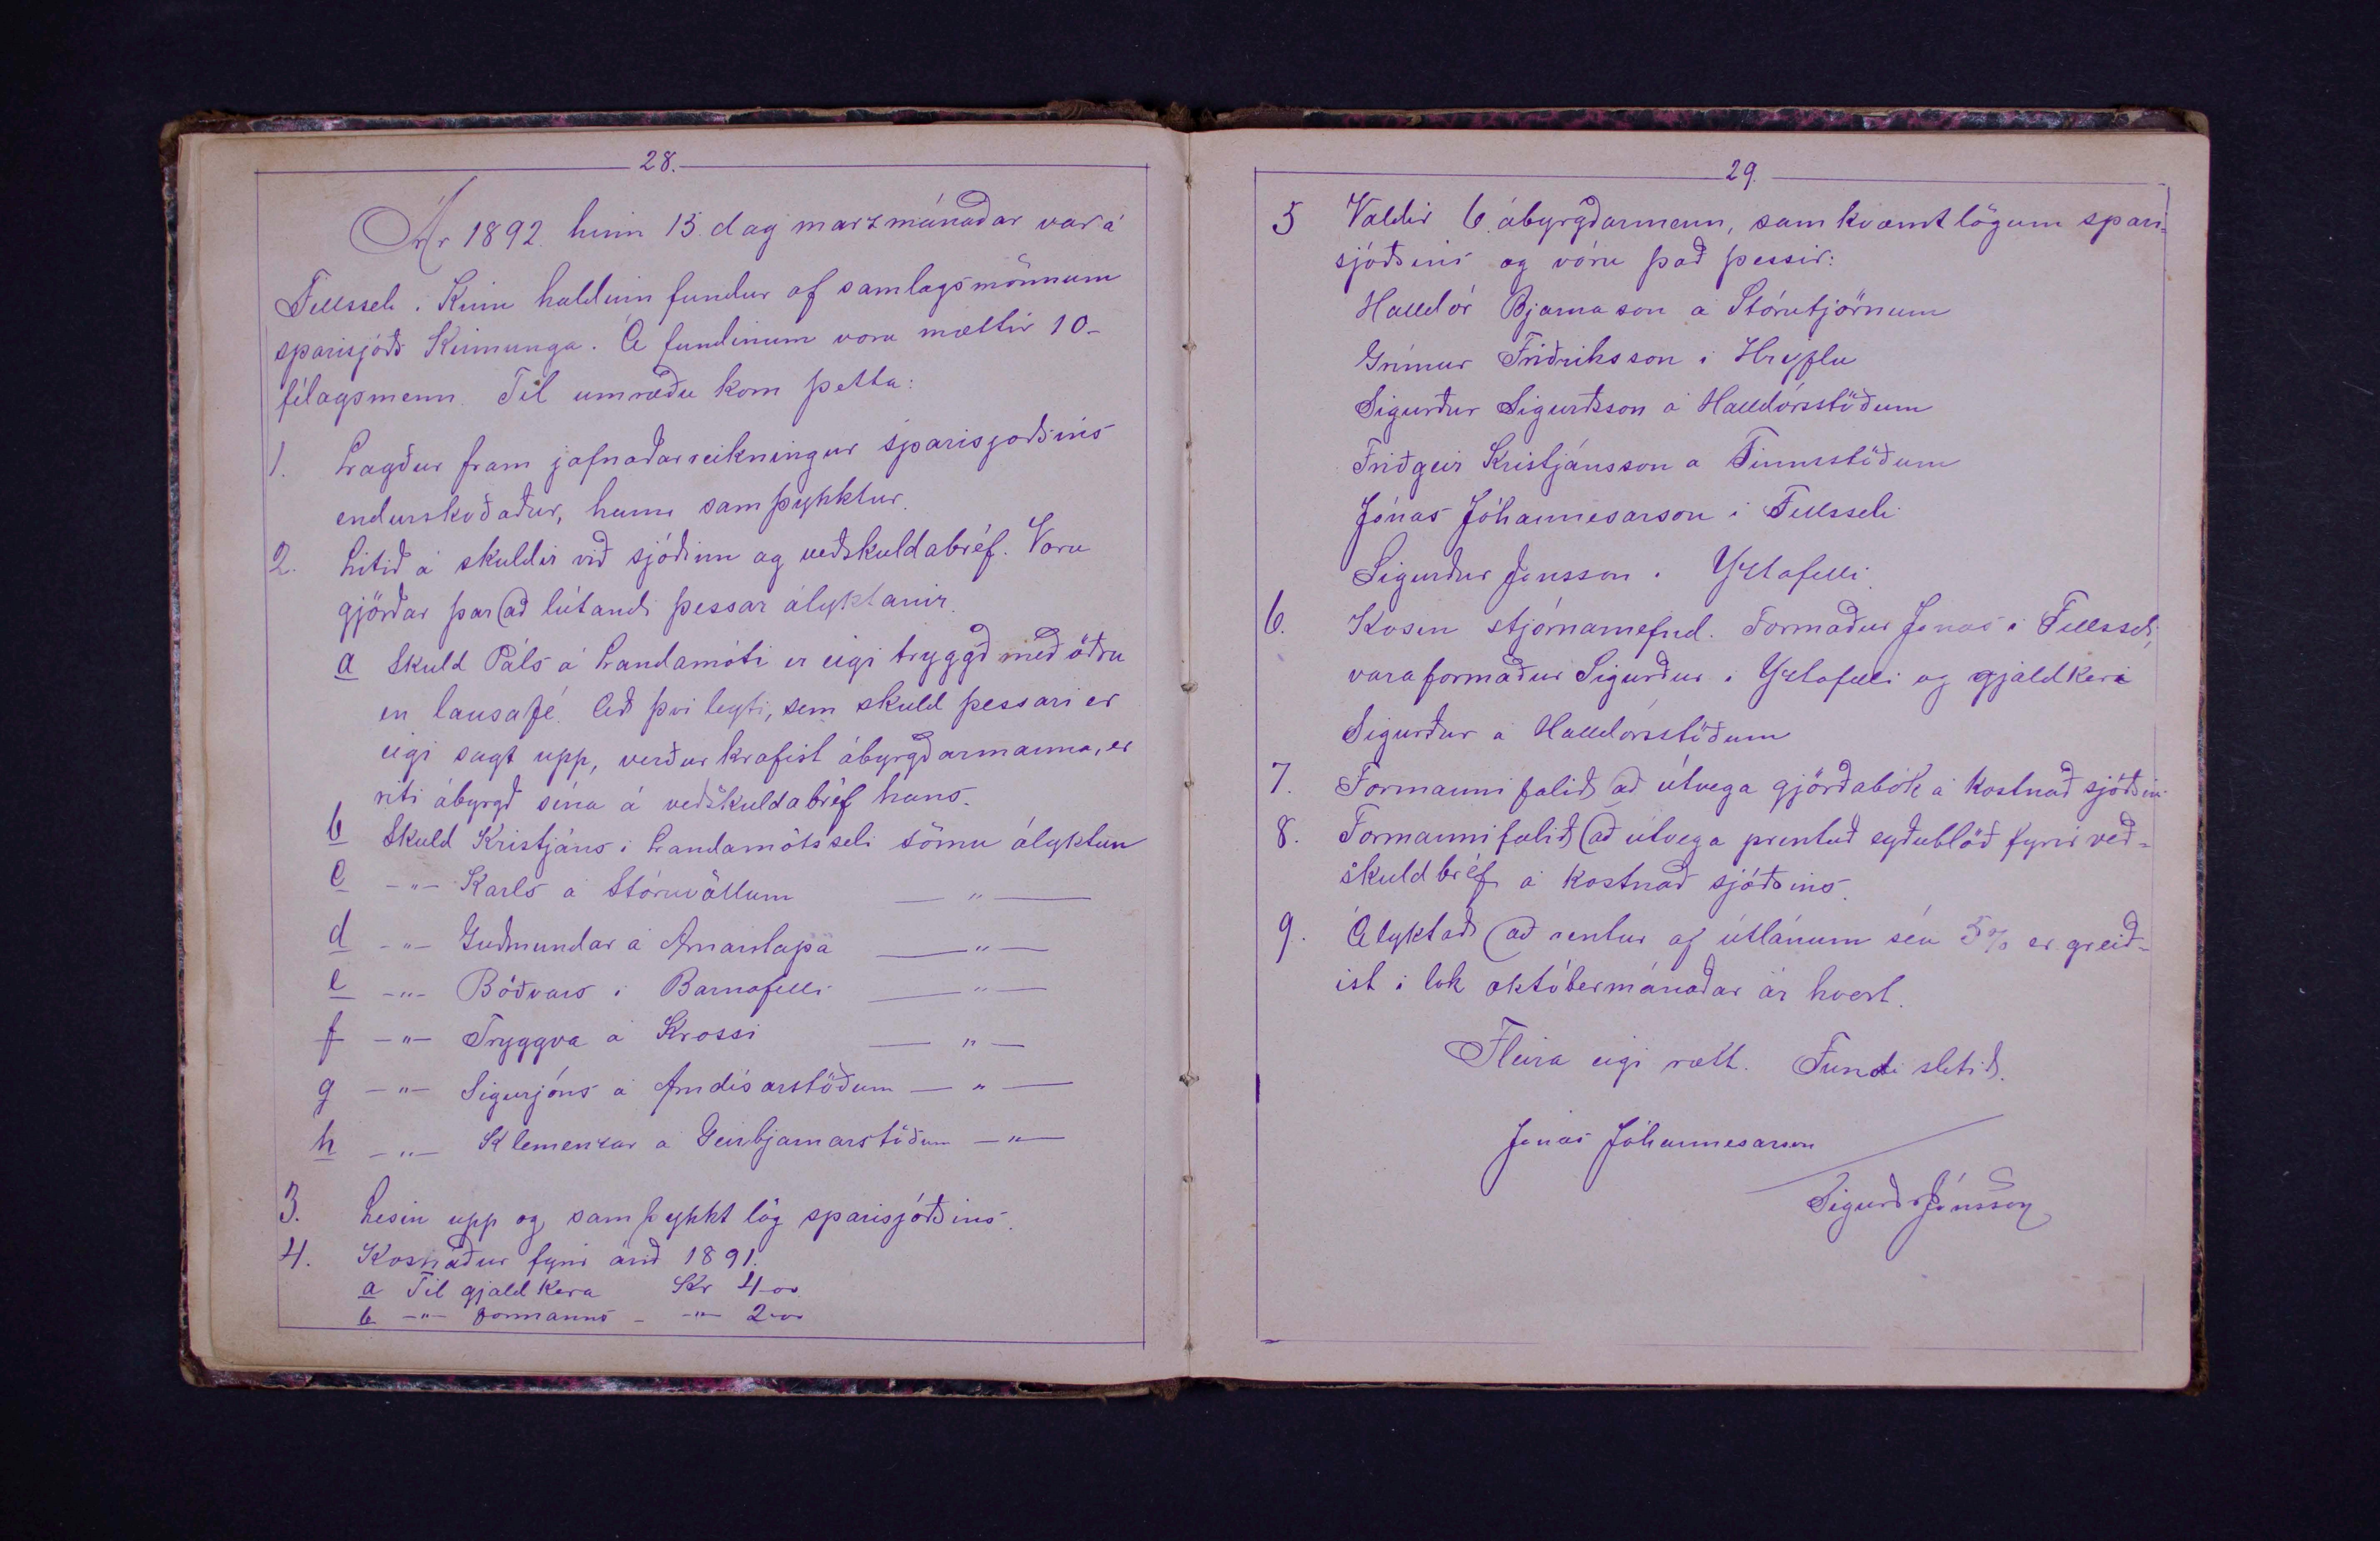 28.
Ár 1892. hinn 15. dag marzmánaðar var á
Fellsseli í Kinn haldinn fundur af samlagsmönnum
sparisjóðs Kinnunga. Á fundinum voru mættir 10-
félagsmenn. Til umræðu kom þetta:
1. Lagður fram jafnaðarreikningur sparisjóðsins
endurskoðaður, hann samþykktur.
2. Litið á skuldir við sjóðinn og veðskuldabréf. Voru
gjörðar þar að lútandi þessar ályktanir.
a Skuld Páls á Landamóti er eigi tryggð með öðru
en lausafé. Að því leyti, sem skuld þessari er
eigi sagt upp, verður krafist ábyrgðarmanna, er
riti ábyrgð sína á veðskuldabréf hans.
b Skuld Kristjáns í Landamótsseli sömu ályktun
c -"- Karls á Stóruvöllum — " —
d -"- Guðmundar á Arnarstapa — " —
e -"- Böðvars í Barnafelli — " —
f -"- Tryggva á Krossi — " —
g -"- Sigurjóns á Arndísarstöðum — " —
h -"- Klemenzar á Geirbjarnarstöðum — " —
3. Lesin upp og samþykkt lög sparisjóðsins.
4. Kosnaður fyrir árið 1891.
a Til gjaldkera Kr 4-00
b -"- formanns - -"- 2-00
29.
5 Valdir 6. ábyrgðarmenn, samkvæmt lögum spari-
sjóðsins og vóru það þessir:
Halldór Bjarnason á Stórutjörnum
Grímur Friðriksson í Hriflu
Sigurður Sigurðsson á Halldórsstöðum
Friðgeir Kristjánsson á Finnsstöðum
Jónas Jóhannesarson í Fellsseli
Sigurður Jónsson í Yztafelli.
6. Kosin stjórnarnefnd. Formaður Jónas í Fellsseli,
varaformaður Sigurður í Yztafelli og gjaldkeri
Sigurður á Halldórsstöðum
7. Formanni falið að útvega gjörðabók á kostnað sjóðsins
8. Formanni falið að útvega prentuð eyðublöð fyrir veð-
skuldbréf á kostnað sjóðsins.
9. Ályktað að rentur af útlánum séu 5% er greið-
ist í lok októbermánaðar ár hvert.
Fleira eigi rætt. Fundi slitið.
Jónas Jóhannesarson
Sigurðr Jónsson